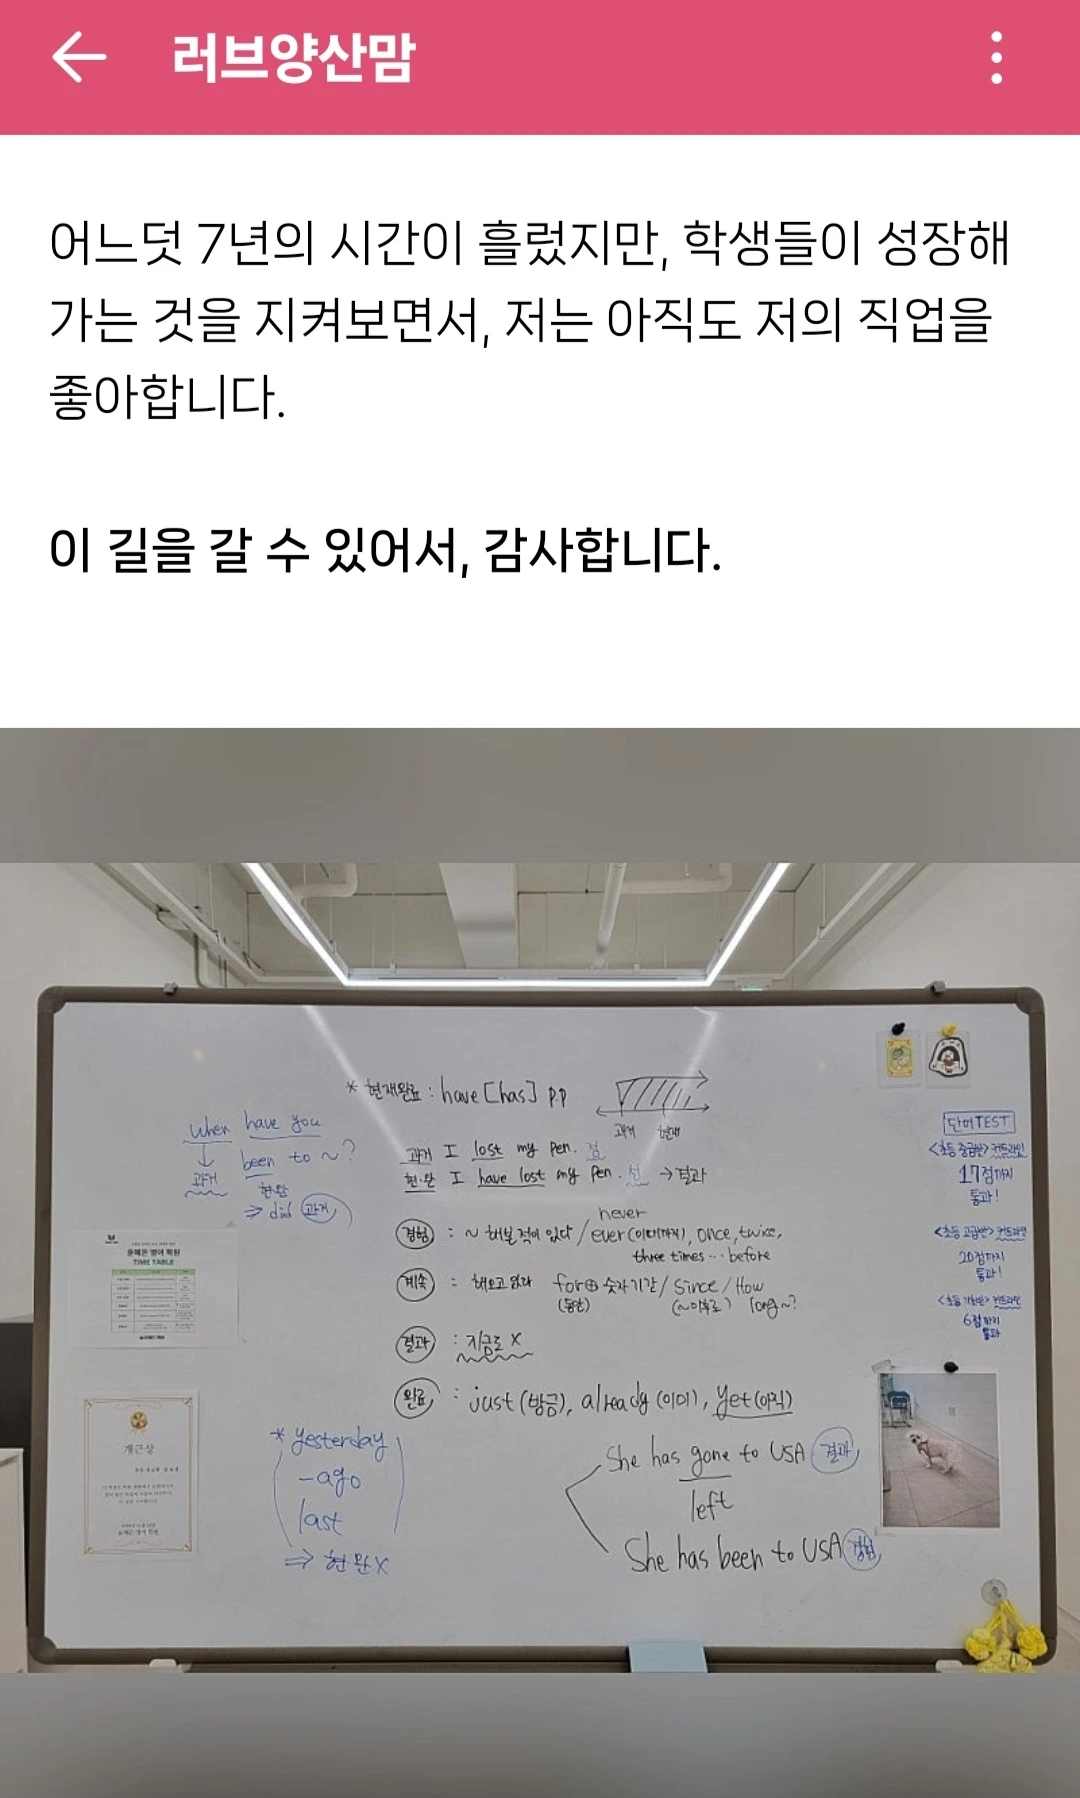 러브양산맘
어느덧 7년의 시간이 흘렀지만, 학생들이 성장해
가는 것을 지켜보면서, 저는 아직도 저의 직업을
좋아합니다.
이 길을 갈 수 있어서, 감사합니다.
* 현재완료 : have [has] p.p
과거 현재
과거 I lost my pen. 점
현.완 I have lost my pen. 선 → 결과
when have you
been to ~?
과거 현완
⇒ did 과거
경험 : ~ 해본 적이 있다 / ever (이때까지), once, twice,
never
three times … before
계속 : 해오고 있다 for ⊕ 숫자기간 / since / How
(동안) (~이후로) long ~?
결과 : 지금도 X
완료 : just (방금), already (이미), yet (아직)
* yesterday
-ago
last
⇒ 현완X
She has gone to USA 결과
left
She has been to USA 경험
단어TEST
<초등 중급반> 커트라인
17점까지
통과!
<초등 고급반> 커트라인
20점까지
통과!
<초등 기초반> 커트라인
6점까지
통과
윤혜은 영어 학원
TIME TABLE
개근상
윤혜은 영어 학원